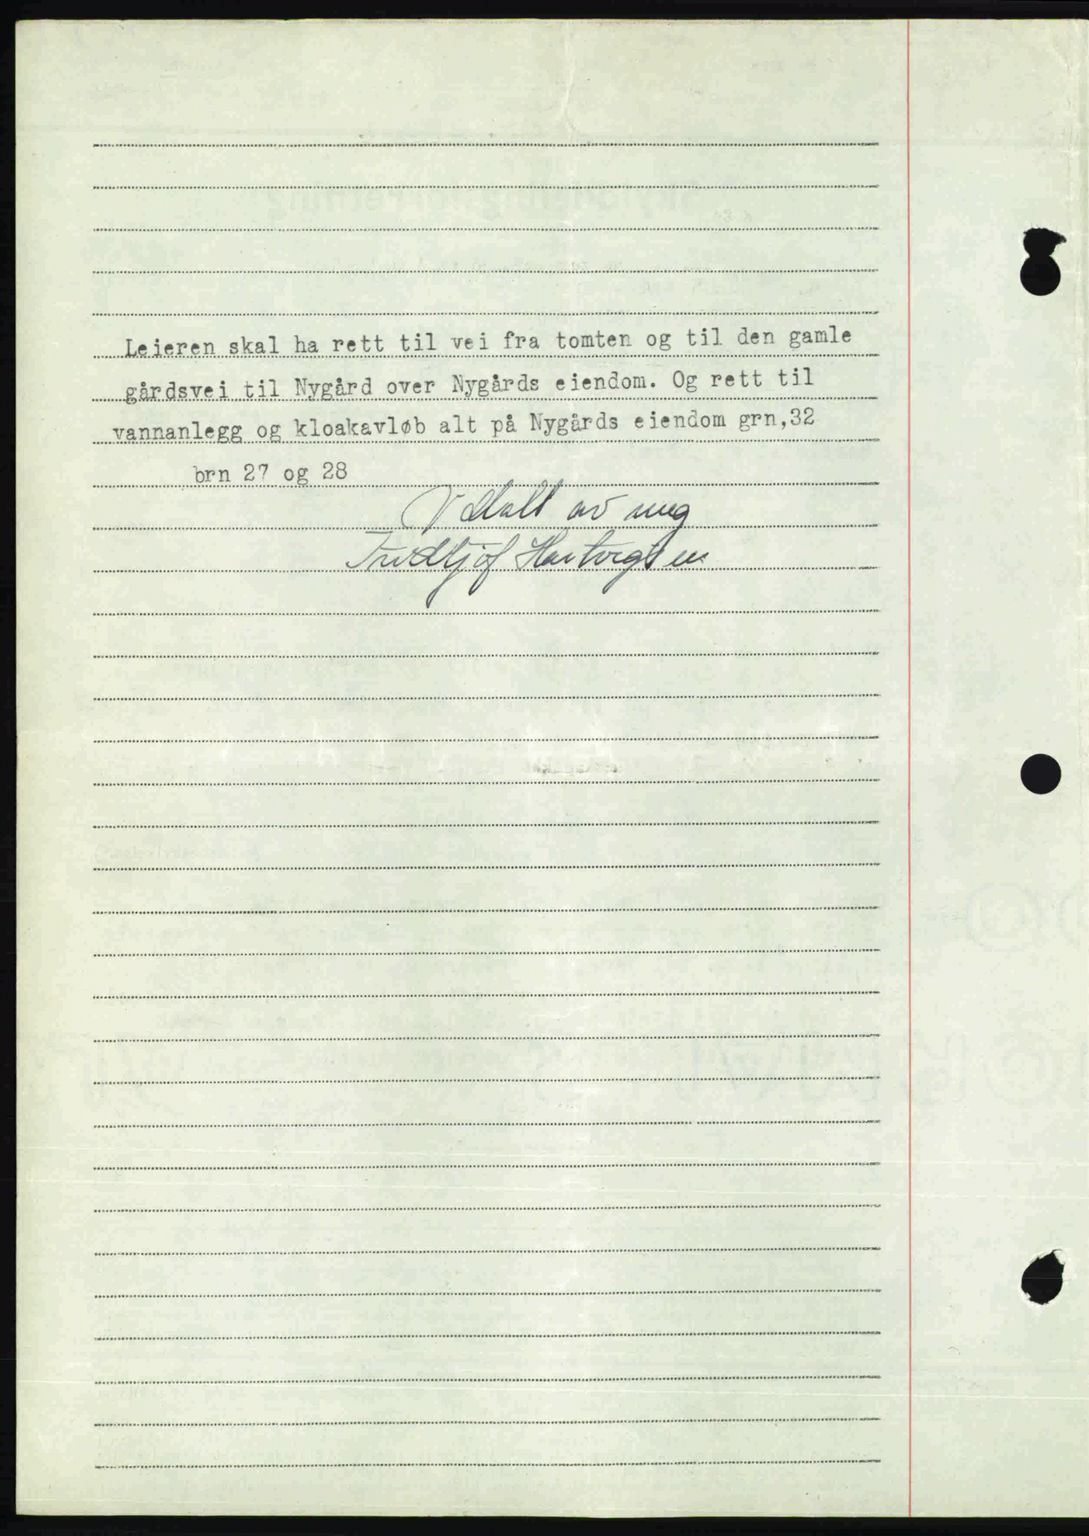 Leieren skal ha rett til vei fra tomten og til den gamle
gårdsvei til Nygård over Nygårds eiendom. Og rett til
vannanlegg og kloakavløb alt på Nygårds eiendom grn,32
brn 27 og 28
Vedtalt av meg
Fridtjof Hartvigsen